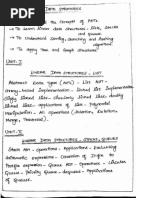 DATA STRUCTURES
the concepts of ADTs.
* To Learn linear data structures - lists, stacks
and queues.
* To Understand Sorting, Searching and hashing
algorithms
* To apply Tree and Graph structures.
UNIT-I
LINEAR DATA STRUCTURES - LIST
Abstract Data Types (ADTs) - List ADT -
Array-based Implementation - Linked list Implementation
Singly linked lists - Circularly linked lists - doubly
linked lists - applications of lists - Polynomial
Manipulation - All operations (Insertion, Deletion,
Merge, Traversal).
UNIT-II
LINEAR DATA STRUCTURES - STACKS, QUEUES
Stack ADT - Operations - Applications - Evaluating
arithmetic expressions - Conversion of Infix to
Postfix expression - Queue ADT - Operations - Circular
Queue - Priority Queue - deQueue - Applications
of Queues.